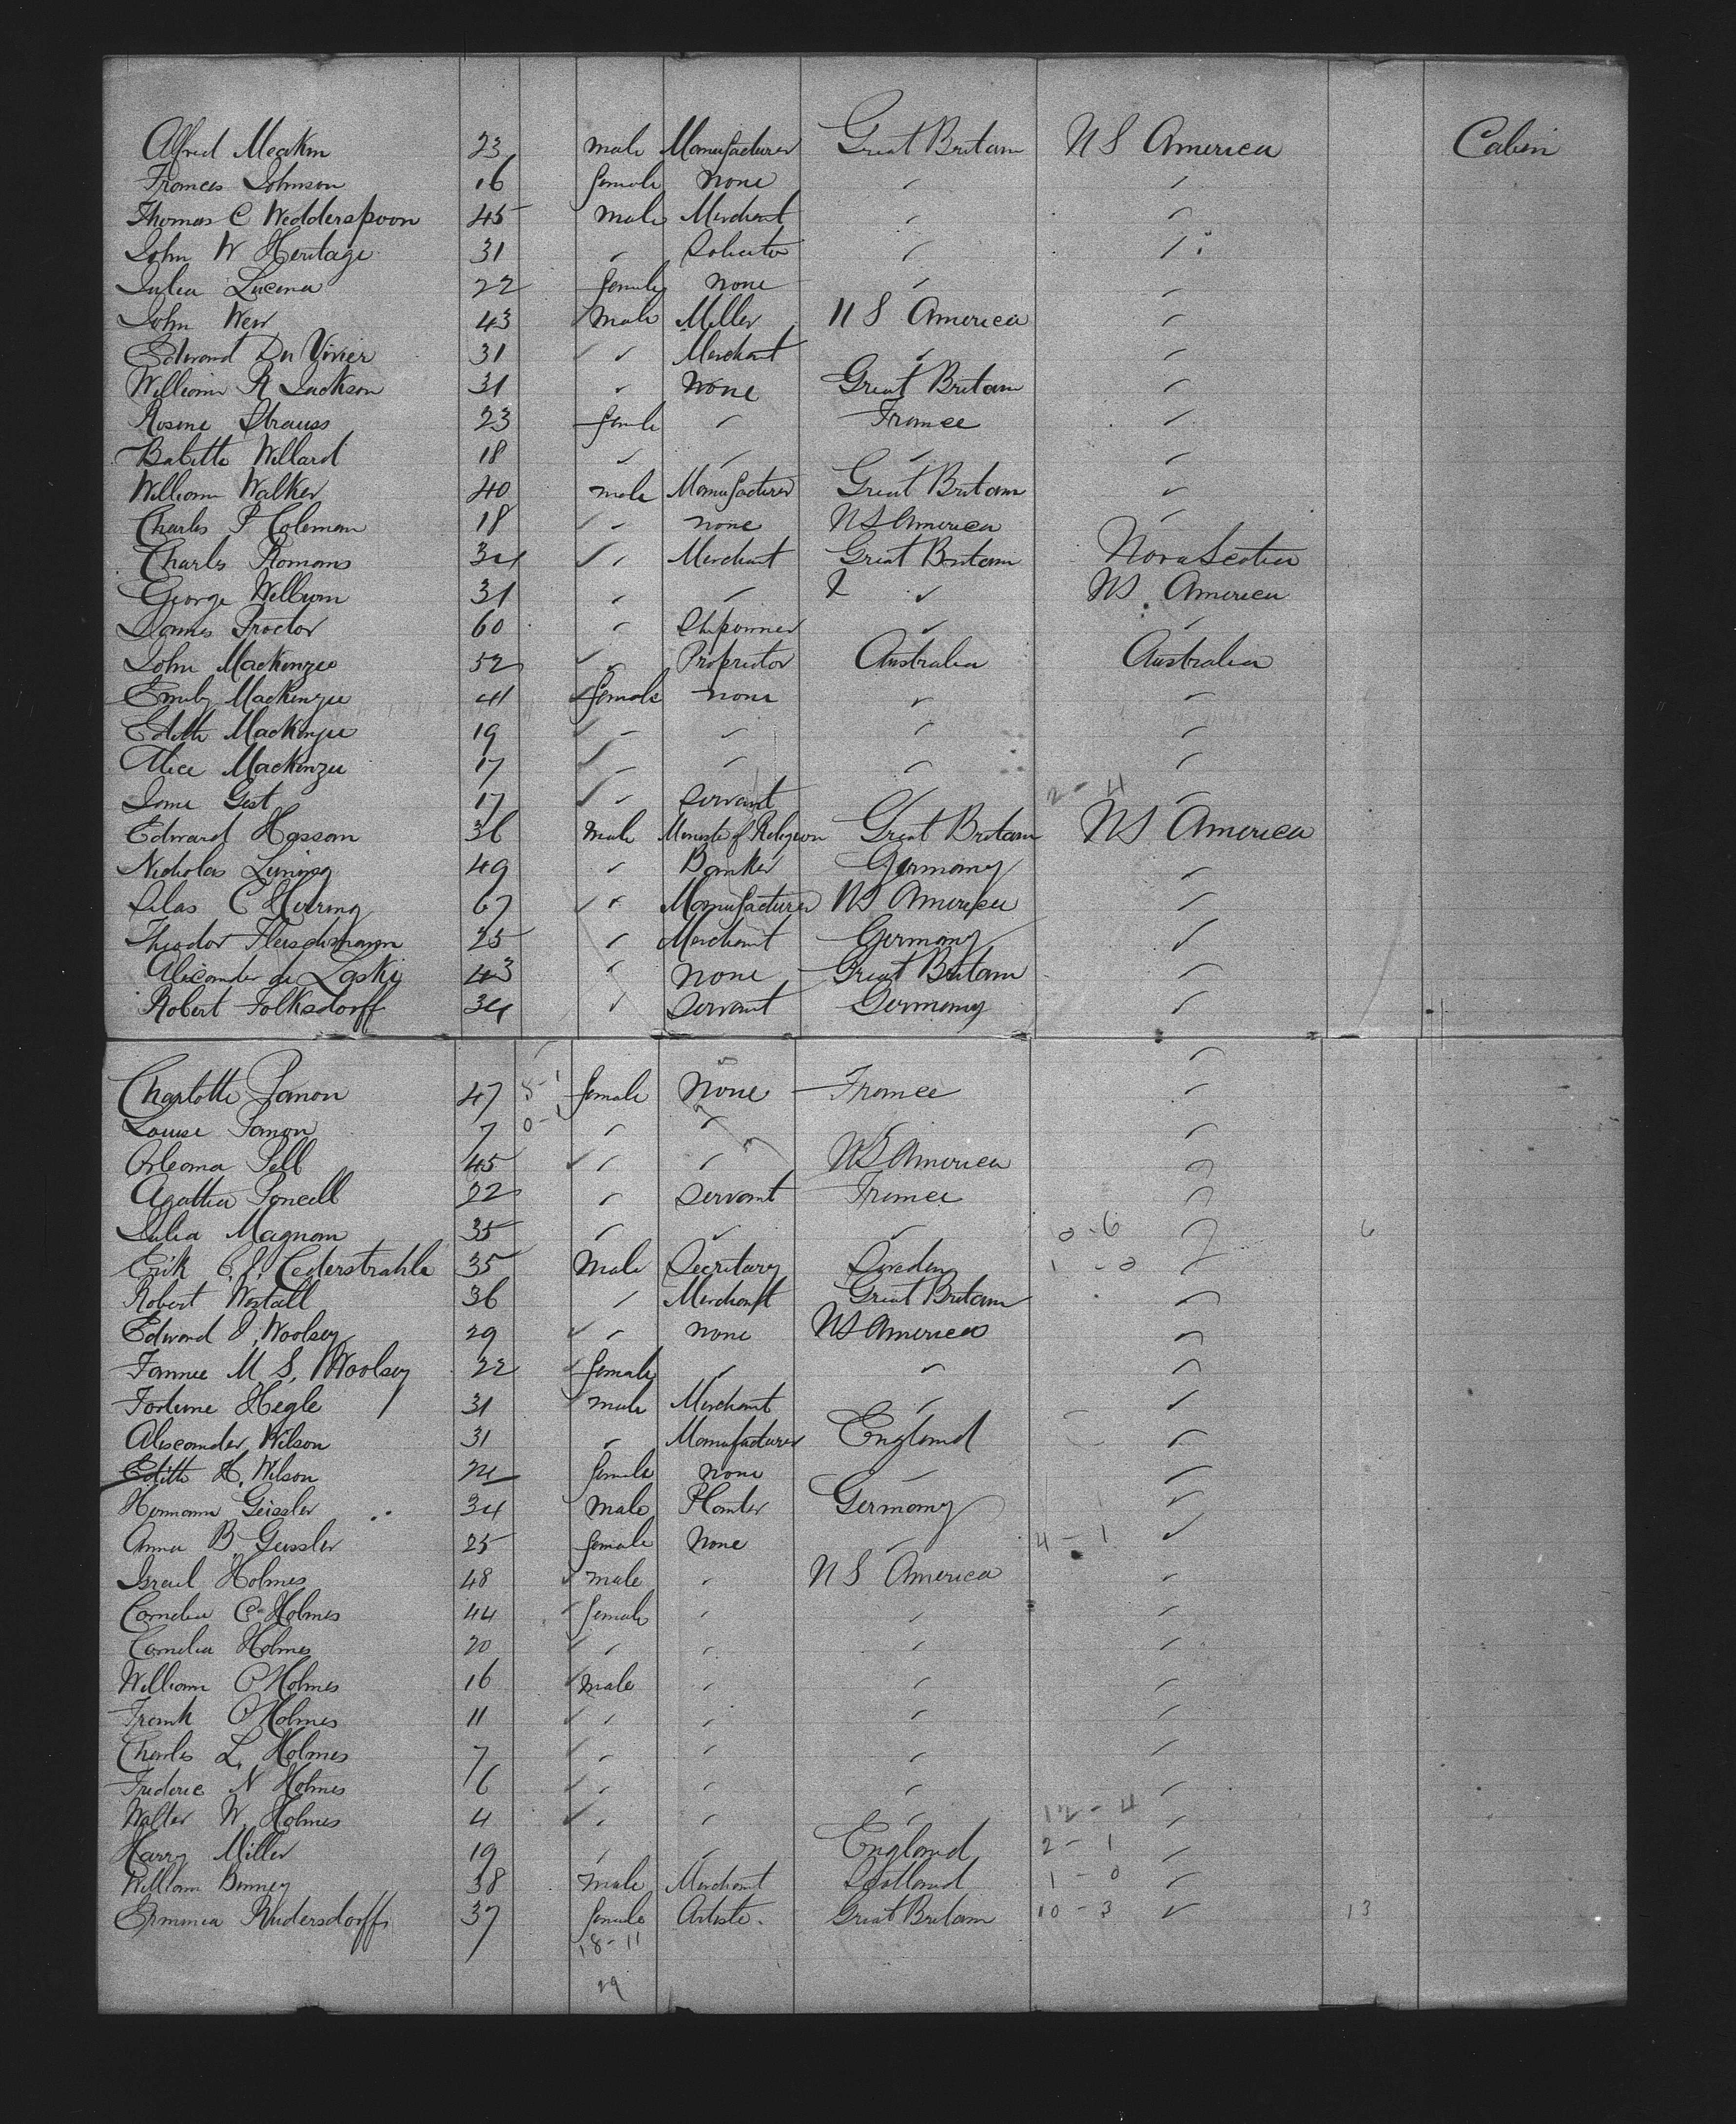 Alfred Meakin 23 male Manufacturer Great Britain U S America Cabin
Frances Johnson 16 female None
Thomas C Wedderspoon 45 male Merchant
John W Heritage 31 Solicitor
Julia Lucena 22 female none
John Weir 43 Male Miller U S America
Edward Du Vivier 31 Merchant
William R Jackson 31 None Great Britain
Rosine Strauss 23 female France
Babette Willard 18
William Walker 40 male Manufacturer Great Britain
Charles P Coleman 18 none U S America
Charles Romans 34 Merchant Great Britain Nova Scotia
George Wilburn 31 US America
James Proctor 60 Shipowner
John Mackenzie 52 Proprietor Australia Australia
Emily Mackenzie 41 female none
Edith Mackenzie 19
Alice Mackenzie 17
Jane Gest 17 Servant 2 - 4
Edward Hassam 36 Male Minister of Religion Great Britain US America
Nicholas Luning 49 Banker Germany
Silas C Herring 67 Manufacturer US America
Theodor Fleischmann 25 Merchant Germany
Alexander de Laski 43 None Great Britain
Robert Folksdorff 34 Servant Germany
Charlotte Panon 47 female None France
Louise Panon 7
Orleana Pell 45 US America
Agatha Poncell 22 Servant France
Julia Magnam 35 6
Erik C. J. Cederstrahle 35 Male Secretary Sweden
Robert Westall 36 Merchant Great Britain
Edward J. Woolsey 29 none US America
Fannie M S. Woolsey 22 female
Fortune Hegle 31 male Merchant
Alexander Wilson 31 Manufacturer England
Edith H. Wilson 24 female none
Hermann Geissler 34 Male Planter Germany
Anna B Geissler 25 female None 4 - 1
Israel Holmes 48 male U S America
Cornelia C Holmes 44 female
Cornelia Holmes 20
William C Holmes 16 male
Frank C Holmes 11
Charles L. Holmes 7
Frederic N Holmes 6
Walter W. Holmes 4 12 - 4
Harry Miller 19 England 2 - 1
William Binney 38 Male Merchant Scotland 1 - 0
Erminia Rudersdorff 37 female Artiste. Great Britain 10 - 3 13
18 - 11
29